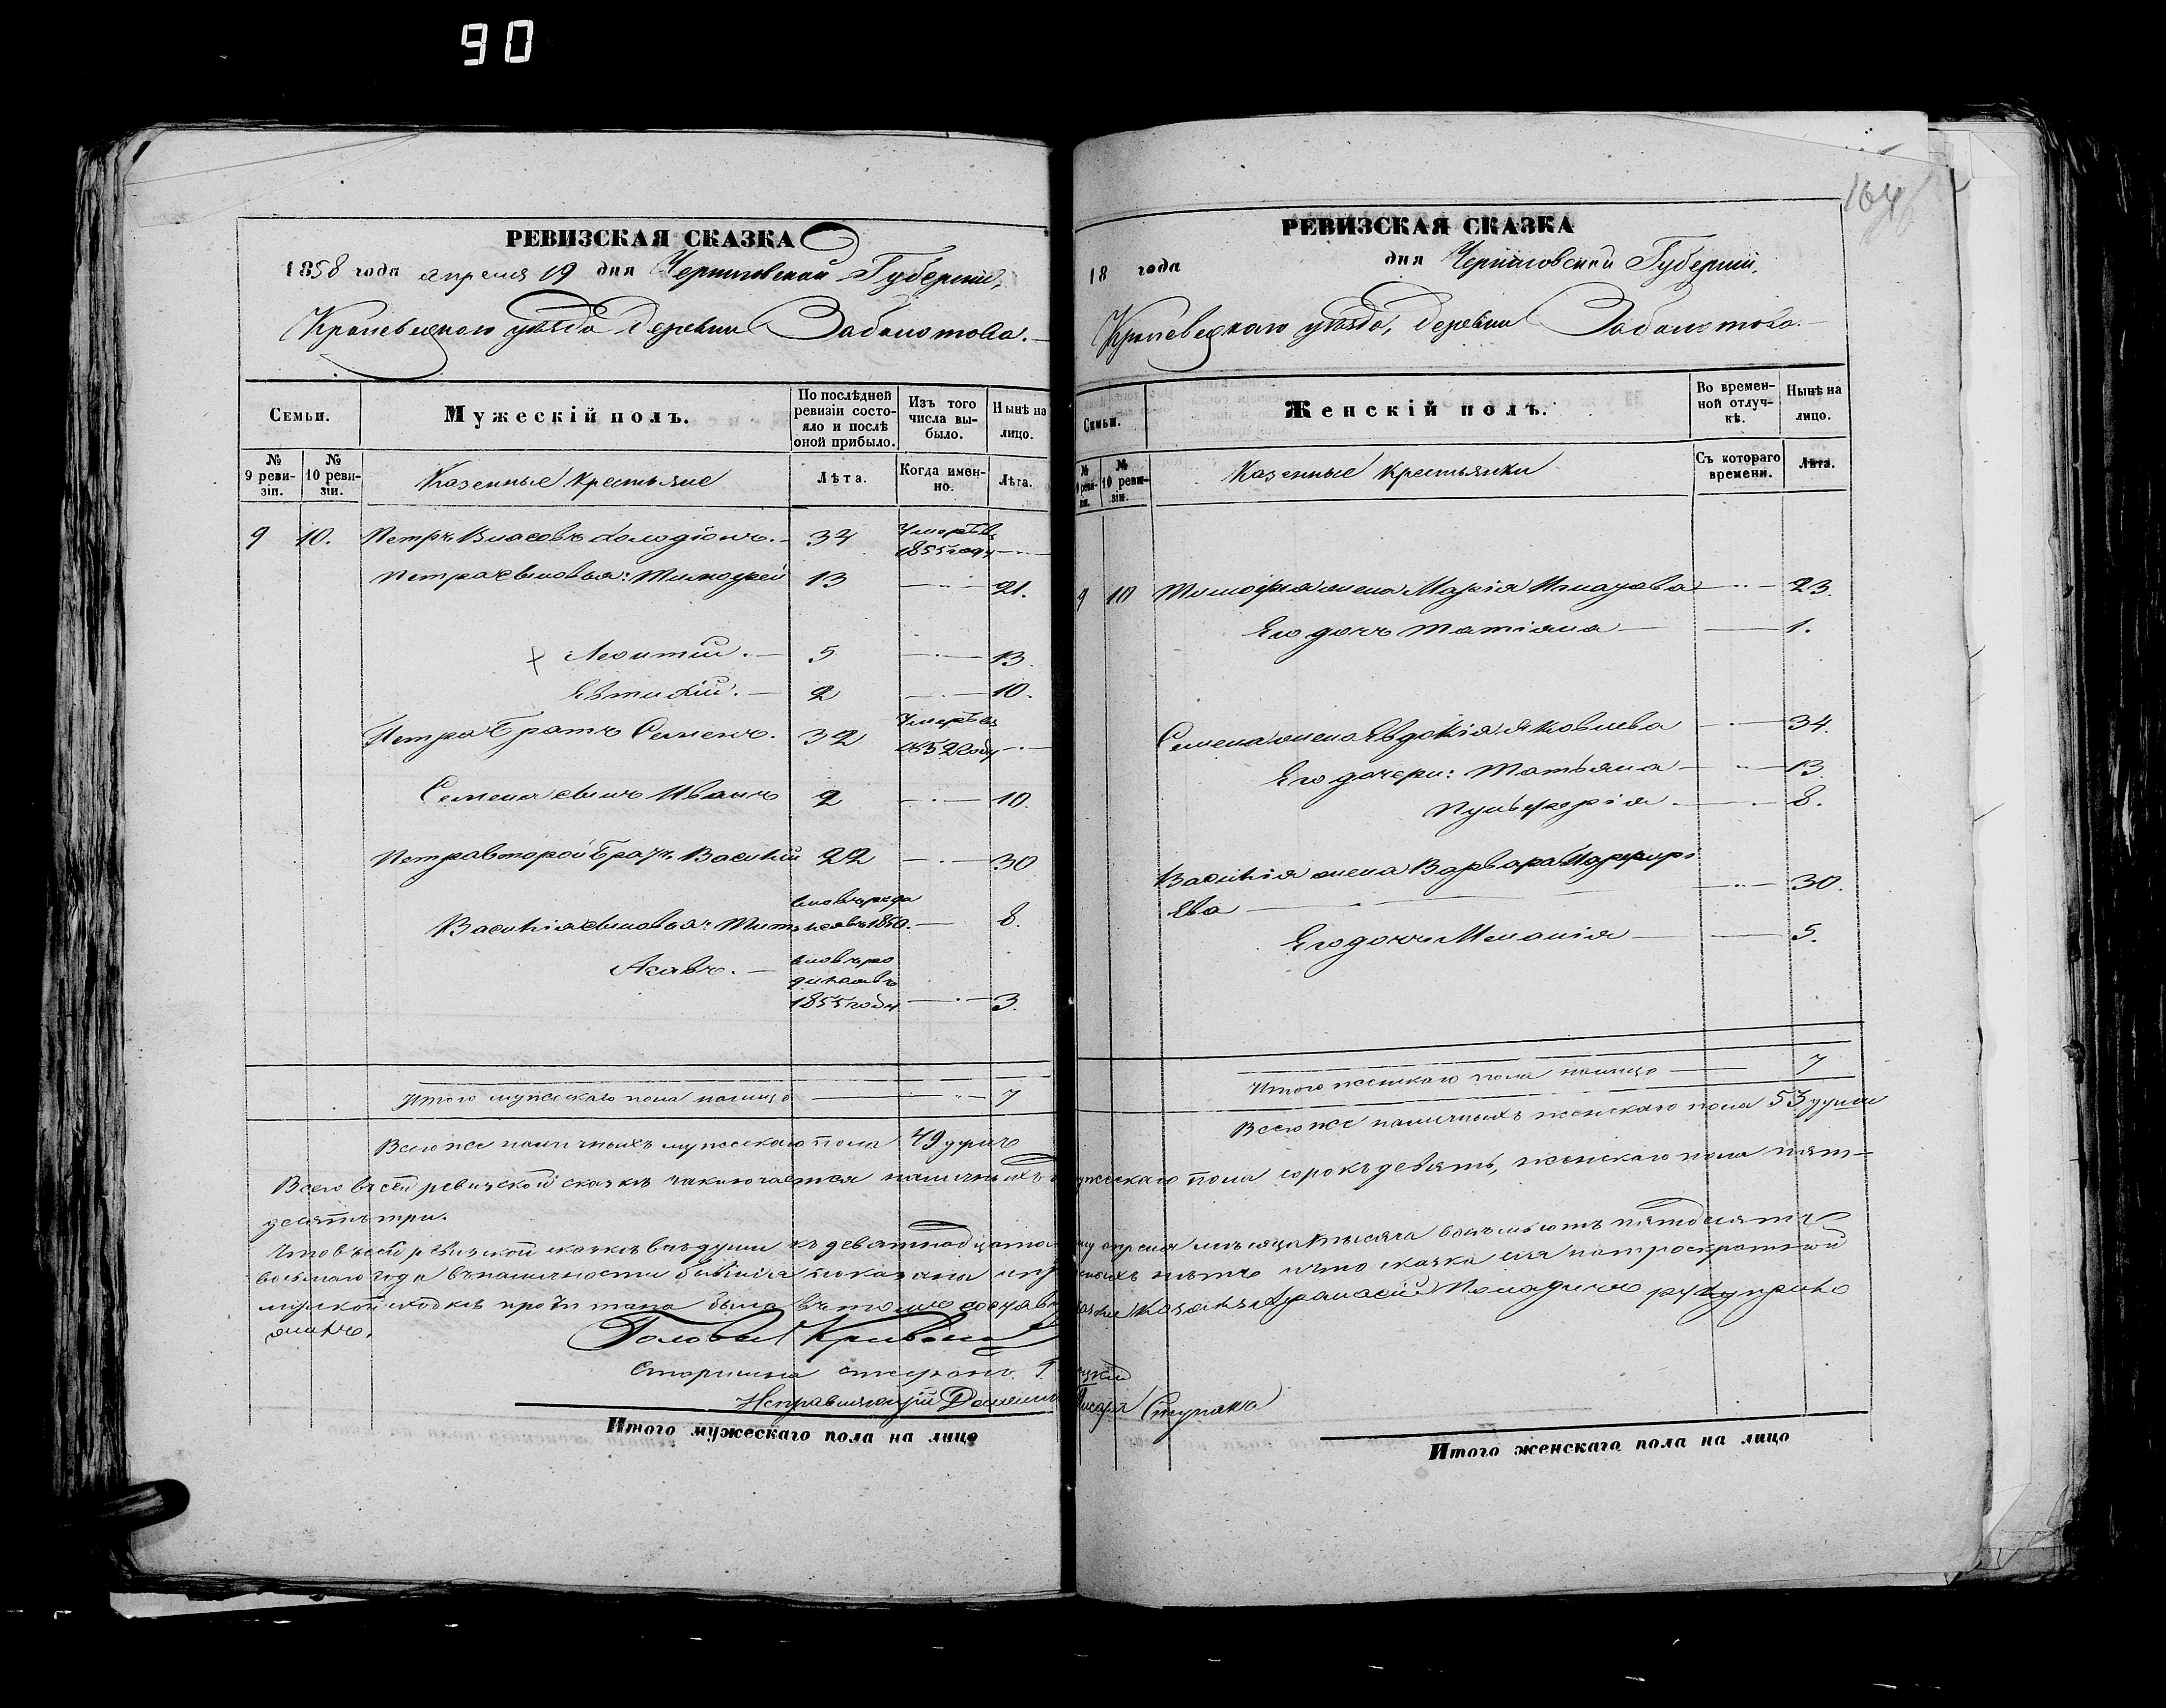 90
164
РЕВИЗСКАЯ СКАЗКА
1858 года апреля 19 дня Черниговской Губернии,
Кролевецкого уезда деревни Заболотова.
Семьи.
Мужескій полъ.
По послѣдней ревизіи состояло и послѣ оной прибыло.
Изъ того числа выбыло.
Нынѣ на лицо.
№ 9 ревизіи.
№ 10 ревизіи.
Казенные крестьяне
Лѣта.
Когда именно.
Лѣта.
9 10. Петръ Власовъ 34 Умеръ въ 1855 году
Петра сыновья: Тимофей 13 21.
Леонтий. 5 13.
Евтихий. 2 10.
Петра Братъ Семенъ. 32 Умеръ въ 1852 году
Семена сынъ Иванъ 2 10.
Петра второй Братъ Василий 22 30
Василия сыновья: Титъ вновь рожд 1850. 8.
вновь родился въ 1855 году 3.
Итого мужескаго пола налицо 7
Всего же наличныхъ мужескаго пола 49 душъ
РЕВИЗСКАЯ СКАЗКА
18 года дня Черниговской Губернии,
Кролевецкаго уезда, деревни Заболотова.
Семьи.
Женскій полъ.
Во временной отлучкѣ.
Нынѣ на лицо.
№ 9 ревизіи.
№ 10 ревизіи.
Казенные крестьянки
Съ котораго времени.
Лѣта.
9 10 Тимофея жена Марія Игнатова 23.
Его дочь Татіана 1.
Семена жена Евдокія Яковлева 34.
Его дочери: Татьяна 13
Пульферія 8.
Василія жена Варвара Парфирі
ева 30.
Его дочь Меланія 5.
Итого женскаго пола налицо 7
Всего же наличныхъ женскаго пола 53 души
Всего въ сей ревизской сказке заключается наличныхъ мужескаго пола сорокъ девять, женскаго пола пять-
десятъ три.
Что въ сей ревизской сказке все души къ девятнадцатому апреля месяца тысяча восемьсотъ пятьдесятъ
восьмого года въ наличности бывшія показаны и нетъ и что сказка сія
мирской сходке прочитана была въ томъ Казакъ Афанасий руку прило
жилъ.
Голова
Старшина
Исправляющій Должность Писаря
Итого мужескаго пола на лицо
Итого женскаго пола на лицо